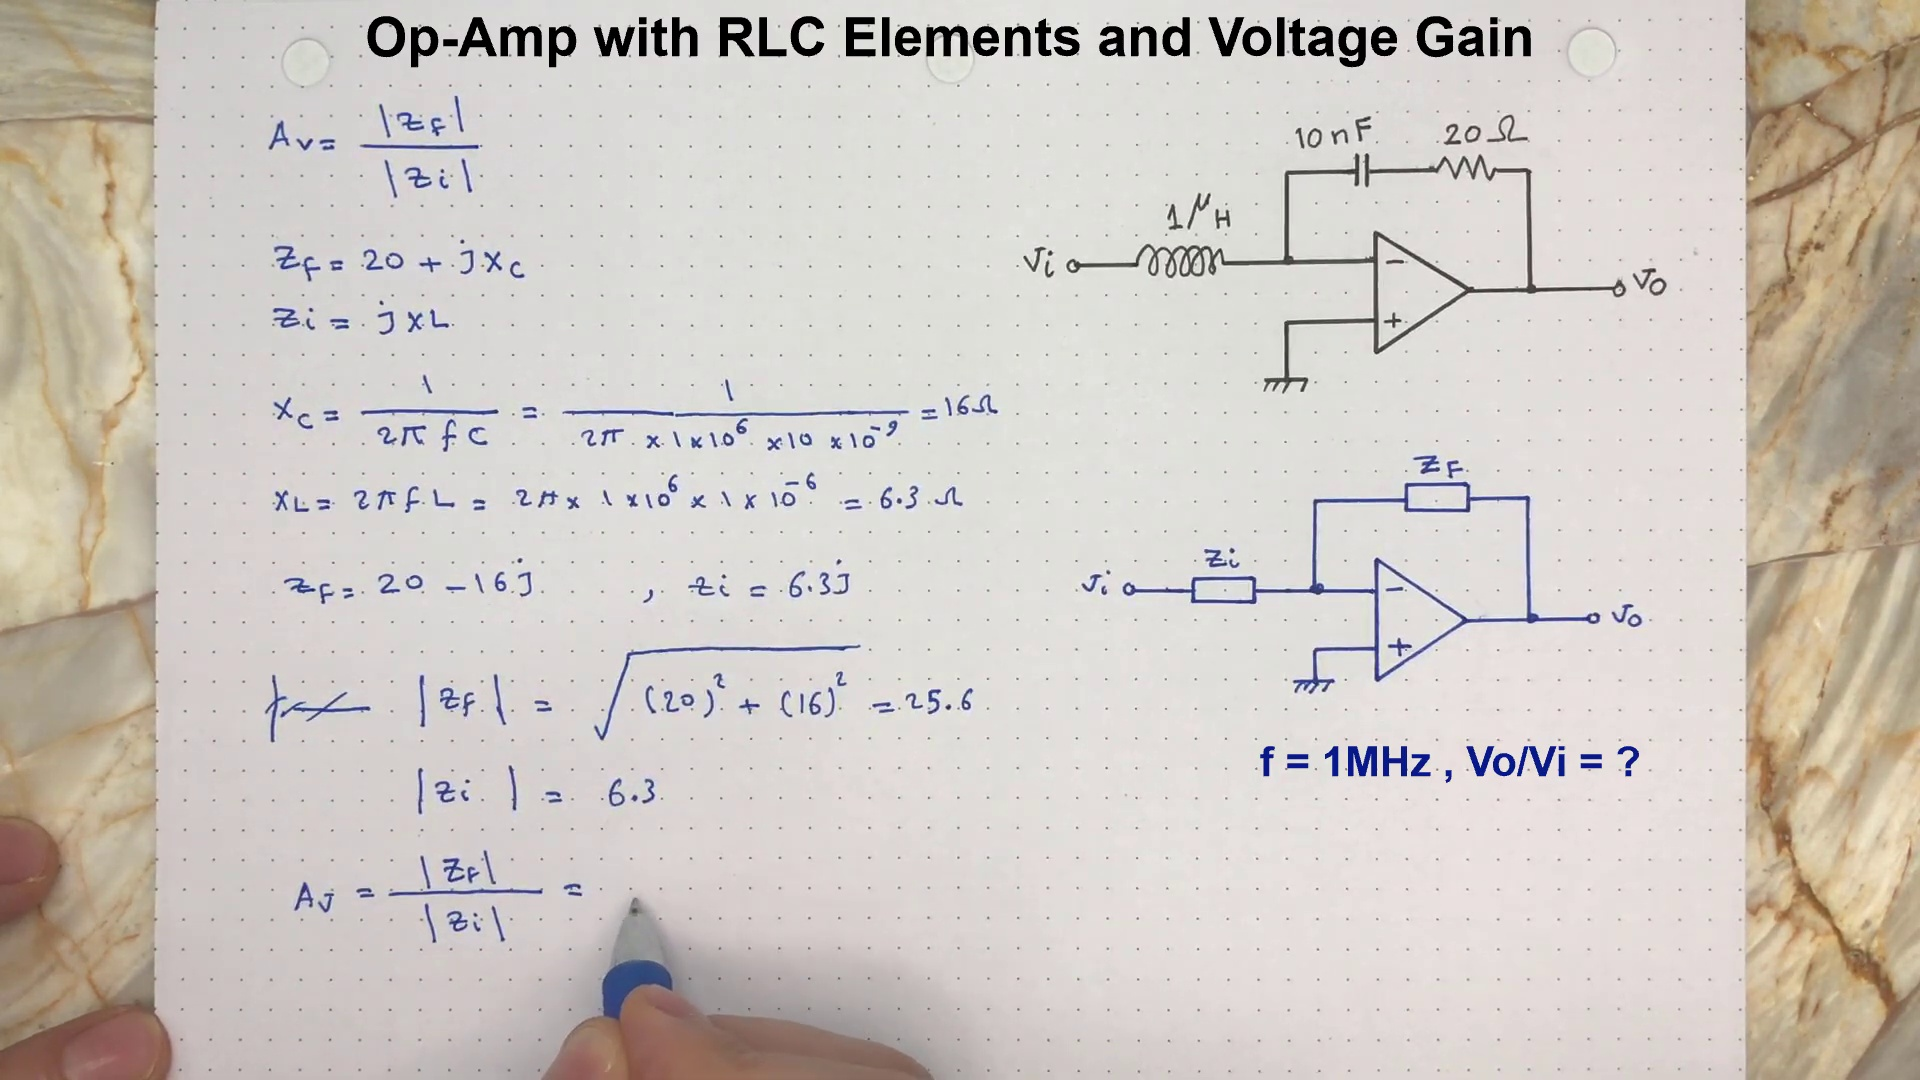 Op-Amp with RLC Elements and Voltage Gain
Av = |ZF| / |Zi|
ZF = 20 + jXC
Zi = jXL
XC = 1 / 2π f C = 1 / 2π × 1×10⁶ ×10 ×10⁻⁹ = 16Ω
XL = 2π f L = 2π × 1 ×10⁶ × 1 × 10⁻⁶ = 6.3 Ω
ZF = 20 - 16j , Zi = 6.3j
|ZF| = √(20)² + (16)² = 25.6
|Zi| = 6.3
Av = |ZF| / |Zi| =
10nF 20Ω
1μH
Vi
-
+
Vo
ZF
Zi
Vi
-
+
Vo
f = 1MHz , Vo/Vi = ?